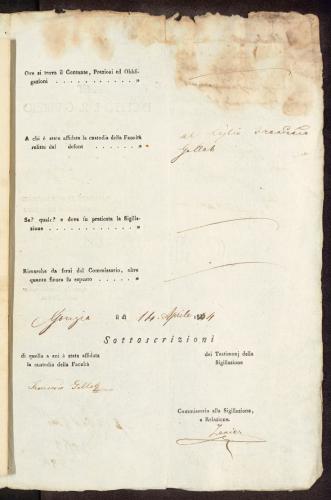 Ove si trova il Contante, Preziosi ed Obbli-
gazioni . . . . . . . . . . . . . „
A chi è stata affidata la custodia della Facoltà
relitta dal defonto . . . . . . . . „
al figlio Francesco
Gallob
Se? quale? e dove fu praticata la Sigilla-
zione . . . . . . . . . . . . . „
Rimarche da farsi dal Commissario, oltre
quanto finora fu esposto . . . . . . „
Gorizia li di 14 Aprile 44
Sottoscrizioni
di quello a cui è stata affidata
la custodia della Facoltà
dei Testimonj della
Sigillazione
Francesco Gallob
Commissario alla Sigillazione,
e Relazione.